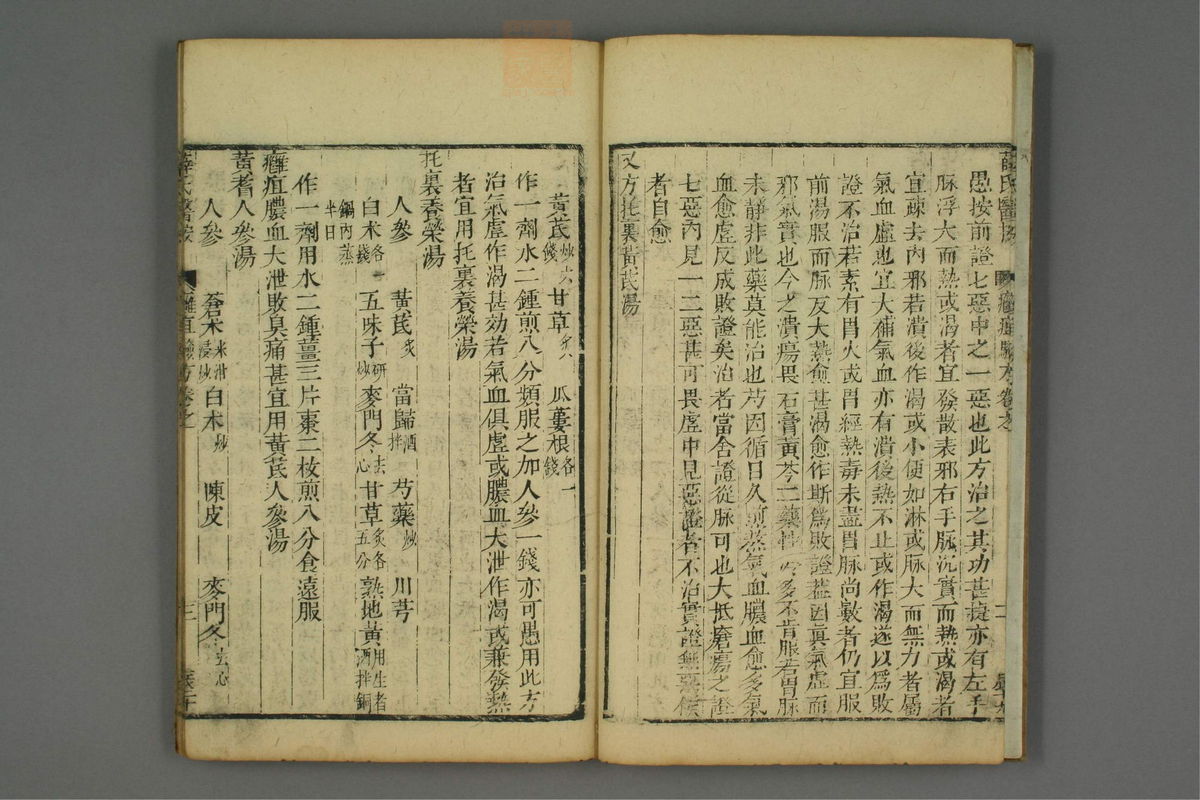 愚按前證七惡中之一惡也此方治之其功甚捷亦有左手
脉浮大而熱或渴者宜發散表邪右手脉沉實而熱或渴者
宜疎去內邪若潰後作渴或小便如淋或脉大而無力者屬
氣血虛也宜大補氣血亦有潰後熱不止或作渴遂以爲敗
證不治若素有胃火或胃經熱毒未盡胃脉尚數者仍宜服
前湯服而反大熱愈甚渴愈作斯爲敗證蓋因眞氣虛而
邪氣實也今之潰瘍畏石膏黃芩二藥性冷多不肯服若胃脉
未靜非此藥莫能治也苟因循日久煎熬氣血膿血愈多氣
血愈虛反成敗證矣治者當舍證從脉可也大抵瘡瘍之證
七惡內見一二惡甚可畏虛中見惡證者不治實證無惡候
者自愈
又方托裏黃芪湯
黃芪炒六錢 甘草炙六 瓜蔞根各一錢
作一劑水二鍾煎八分類服之加人參一錢亦可愚用此方
治氣虛作渴甚効若氣血俱虛或膿血大泄作渴或兼發熱
者宜用托裏養榮湯
托裏養榮湯
人參 黃芪炙 當歸酒拌 芍藥炒 川芎
白朮各一錢 五味子研炒 麥門冬去心 甘草炙各五分 熟地黃用生者酒拌銅
鍋內蒸半日
作一劑用水二鍾薑三片棗二枚煎八分食遠服
癰疽膿血大泄敗臭痛甚宜用黃芪人參湯
黃耆人參湯
人參 蒼朮米泔浸炒 白朮炒 陳皮 麥門冬去心